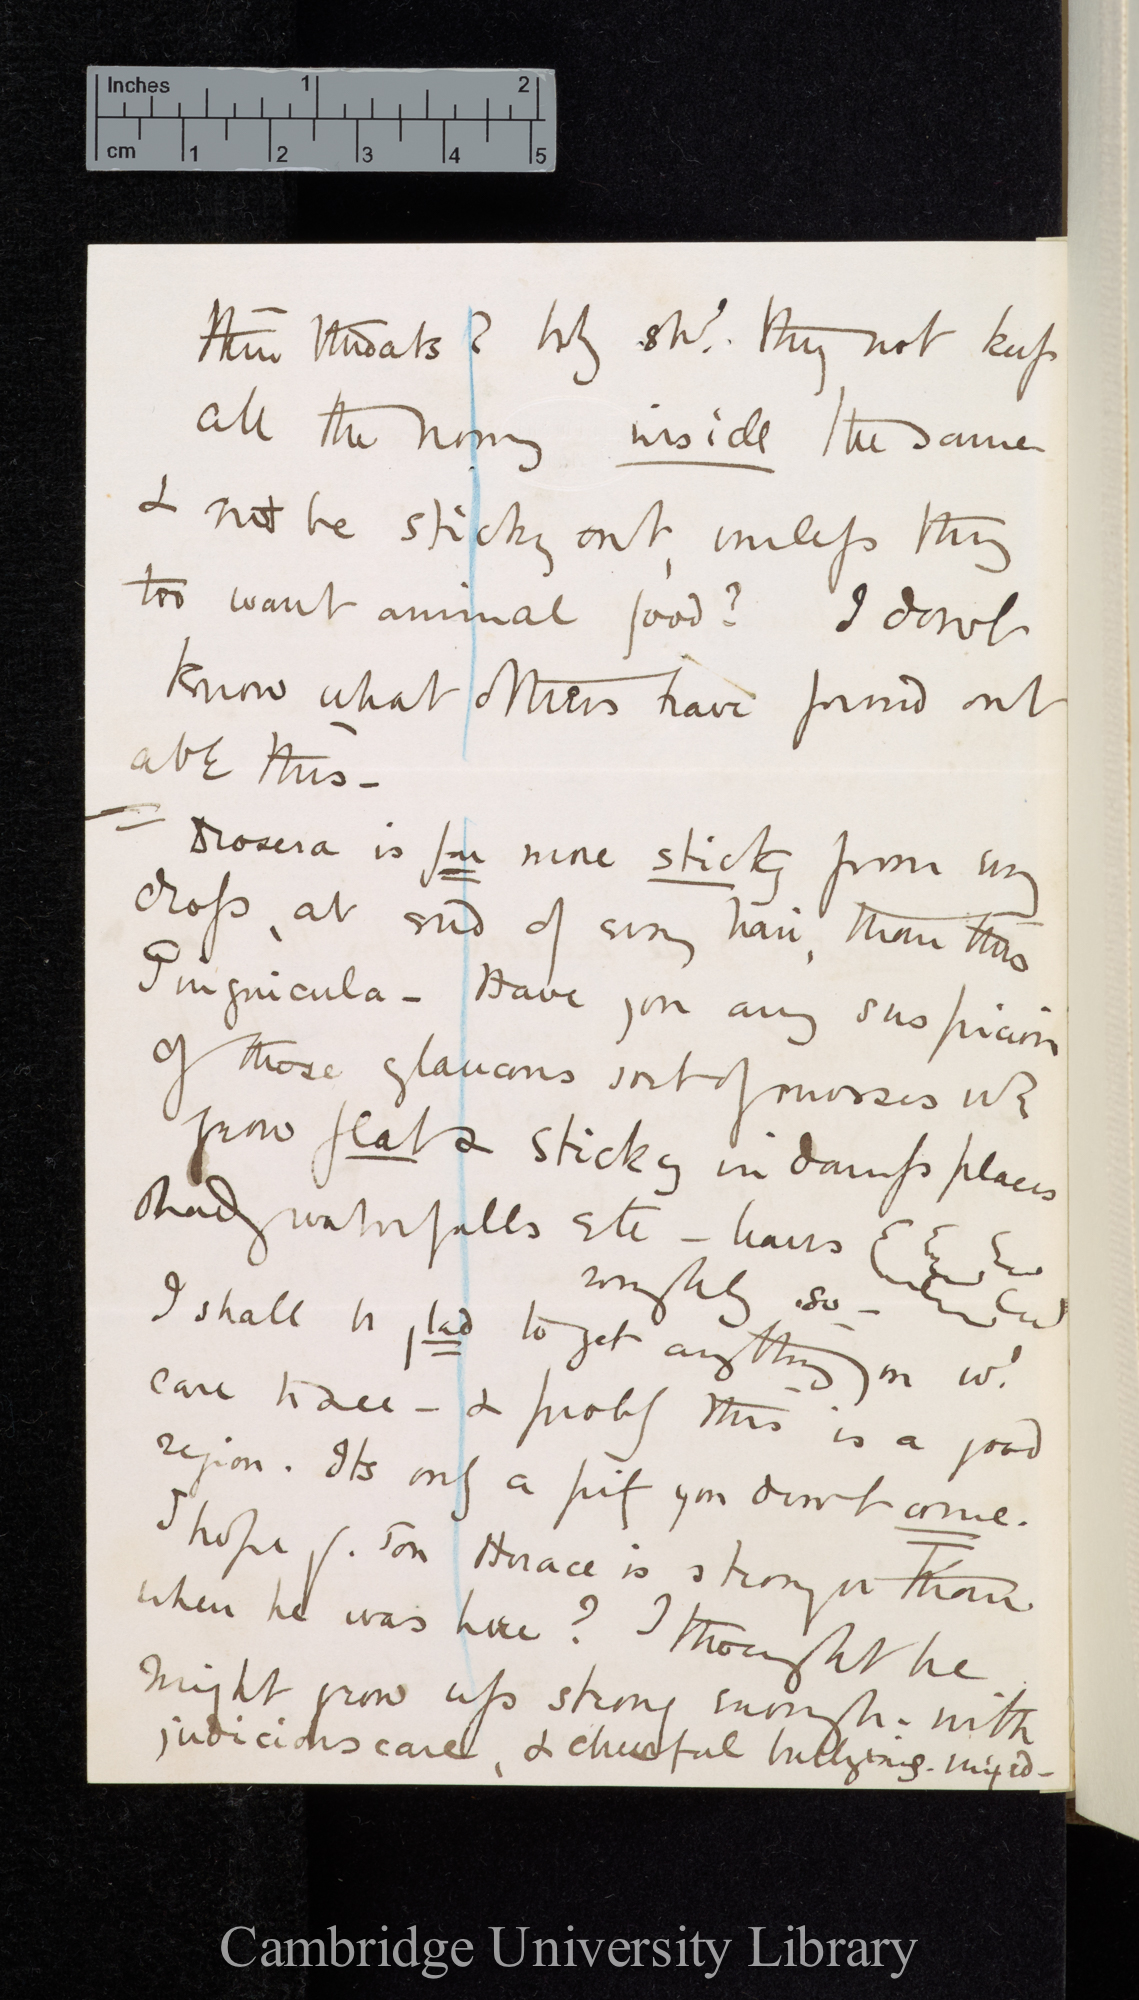 Inches 1 2
cm 1 2 3 4 5
their throats? why shd. they not keep
all the honey inside the same
& not be sticky out, unless they
too want animal food? I don't
know what others have found out
abt this—
Drosera is far more sticky from evy
drop, at end of every hair, than this
Pinguicula— Have you any suspicion
of those glaucous sort of mosses wh
grow flat & sticky in damp places
shady waterfalls etc — leaves
roughly so—
I shall be glad to get anything you wd.
care to see — & probly this is a good
region. Its only a pity you don't come.
I hope yr. son Horace is stronger than
when he was here? I thought he
might grow up strong enough. with
judicious care, & cheerful bullying. mixed—
Cambridge University Library